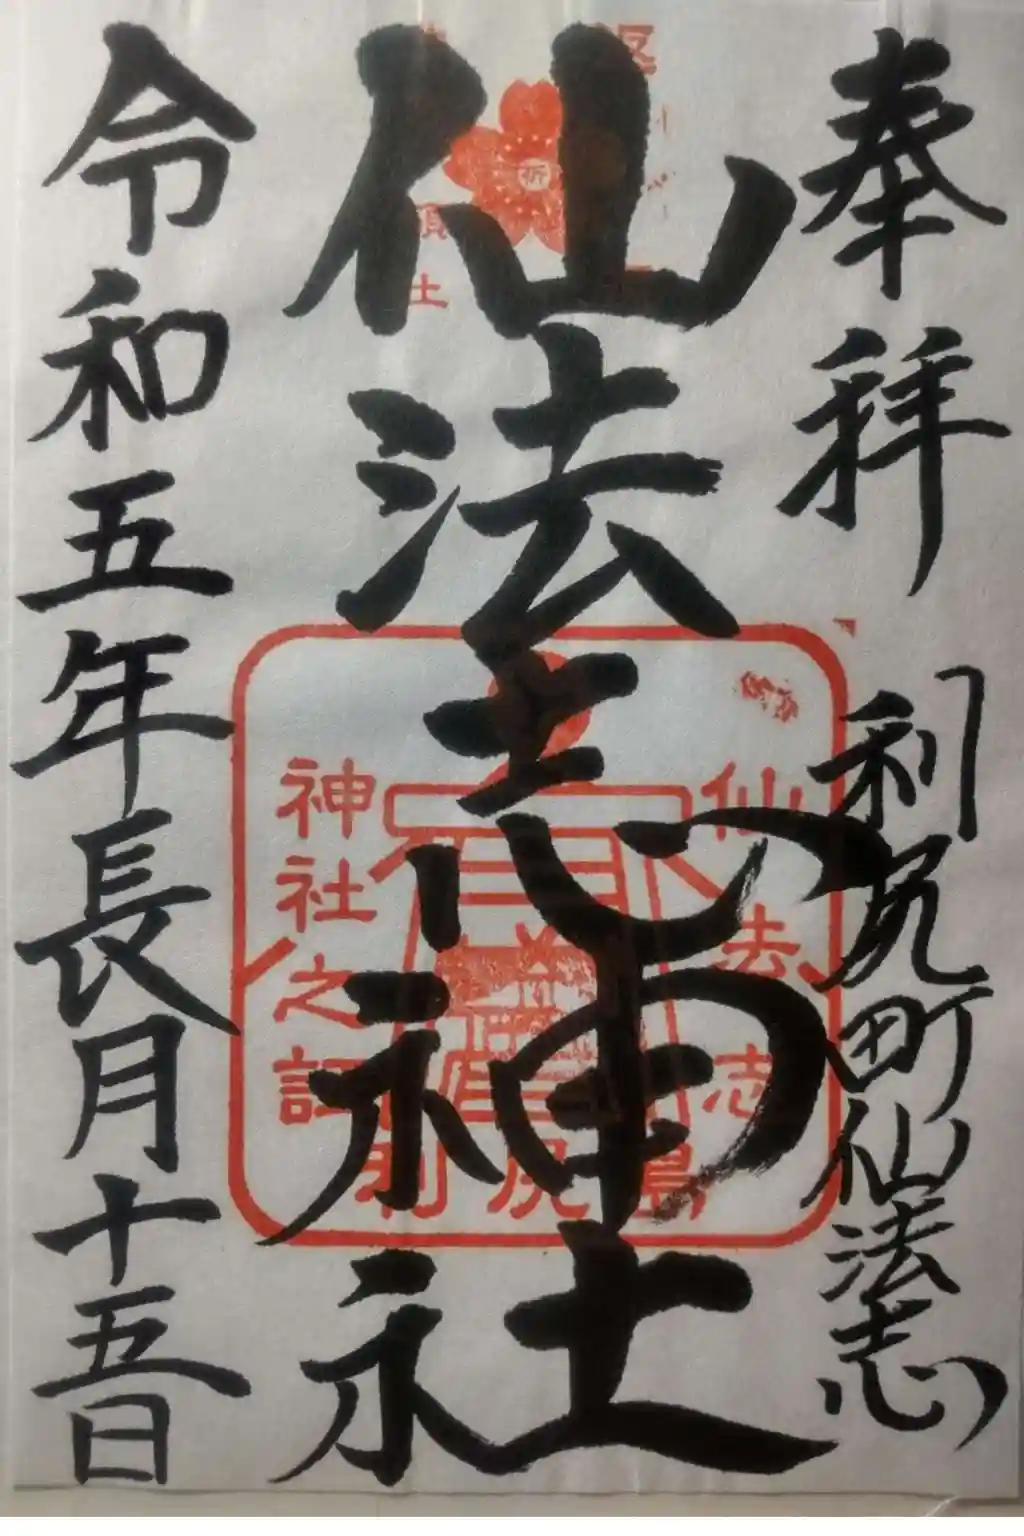 奉拝
利尻町仙法志
仙法志神社
令和五年長月十五日
仙法志
神社之印
利尻島
祈